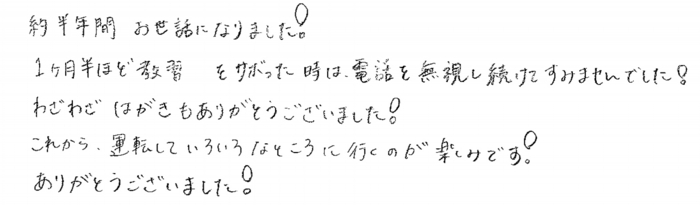 約半年間 お世話になりました!
1ヶ月半ほど教習 をサボった時は、電話を無視し続けてすみませんでした!
わざわざ はがきもありがとうございました!
これから、運転していろいろなところに行くのが楽しみです!
ありがとうございました!